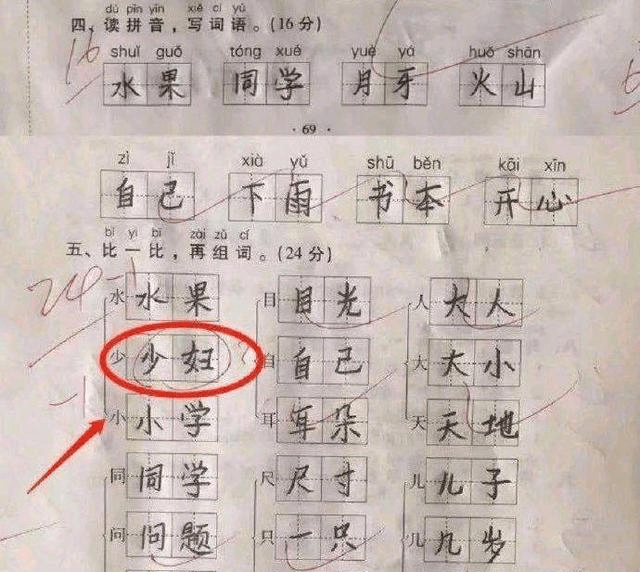 dú pīn yīn xiě cí yǔ
四、读拼音，写词语。(16分)
16
shuǐ guǒ tóng xué yuè yá huǒ shān
水果 同学 月牙 火山
·69·
zì jǐ xià yǔ shū běn kāi xīn
自己 下雨 书本 开心
bǐ yi bǐ zài zǔ cí
五、比一比，再组词。(24分)
24-1
水 水果 日 目光 人 大人
少 少妇 自 自己 大 大小
-1
小 小学 耳 耳朵 天 天地
同 同学 尺 尺寸 儿 儿子
问 问题 只 一只 几 几岁